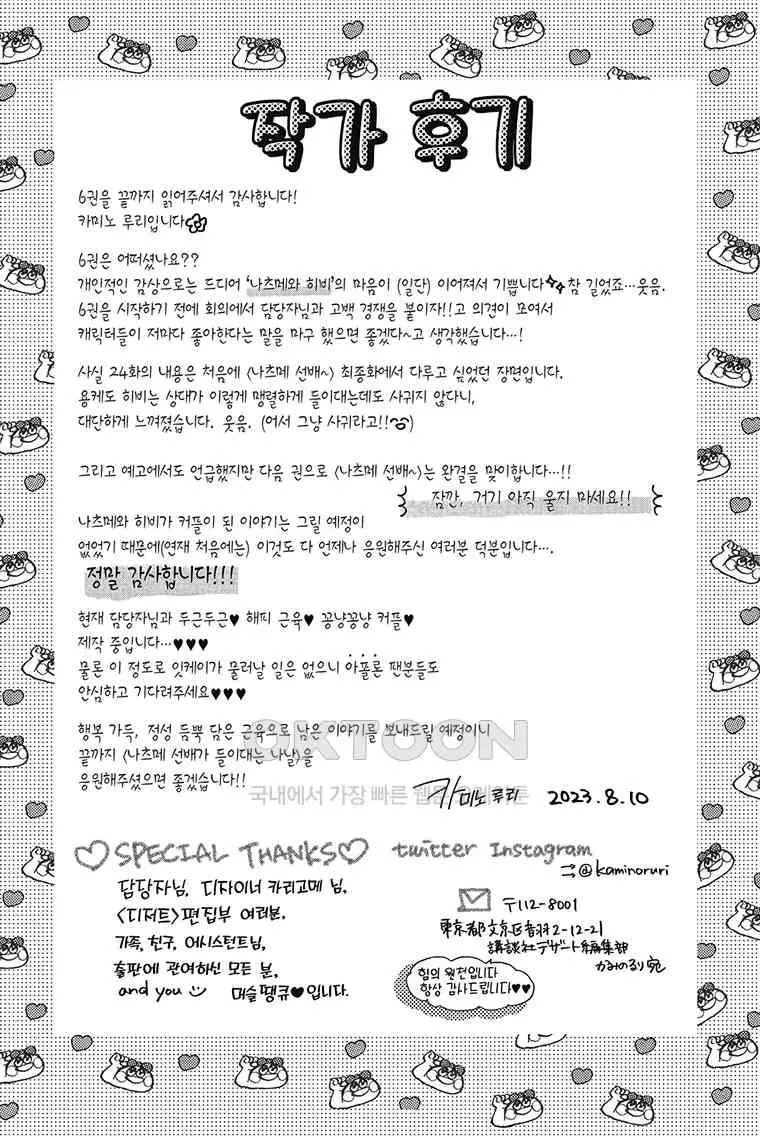 작가 후기
6권을 끝까지 읽어주셔서 감사합니다!
카미노 루리입니다
6권은 어떠셨나요??
개인적인 감상으로는 드디어 '나츠메와 히비'의 마음이 (일단) 이어져서 기쁩니다 참 길었죠…웃음.
6권을 시작하기 전에 회의에서 담당자님과 고백 경쟁을 붙이자!!고 의견이 모여서
캐릭터들이 저마다 좋아한다는 말을 마구 했으면 좋겠다~고 생각했습니다…!
사실 24화의 내용은 처음에 〈나츠메 선배~〉 최종화에서 다루고 싶었던 장면입니다.
용케도 히비는 상대가 이렇게 맹렬하게 들이대는데도 사귀지 않다니,
대단하게 느껴졌습니다. 웃음. (어서 그냥 사귀라고!!)
그리고 예고에서도 언급했지만 다음 권으로 〈나츠메 선배~〉는 완결을 맞이합니다…!!
잠깐, 거기 아직 울지 마세요!!
나츠메와 히비가 커플이 된 이야기는 그릴 예정이
없었기 때문에(연재 처음에는) 이것도 다 언제나 응원해주신 여러분 덕분입니다….
정말 감사합니다!!!
현재 담당자님과 두근두근♥ 해피 근육♥ 꽁냥꽁냥 커플♥
제작 중입니다…♥♥♥
물론 이 정도로 잇케이가 물러날 일은 없으니 아폴론 팬분들도
안심하고 기다려주세요♥♥♥
행복 가득, 정성 듬뿍 담은 근육으로 남은 이야기를 보내드릴 예정이니
끝까지 〈나츠메 선배가 들이대는 나날〉을
응원해주셨으면 좋겠습니다!!
OKTOON
국내에서 가장 빠른 웹툰
카미노 루리 2023.8.10
♡SPECIAL THANKS♡
담당자님, 디자이너 카리고메 님,
〈디저트〉편집부 여러분,
가족, 친구, 어시스턴트님,
출판에 관여하신 모든 분,
and you 머슬땡큐♥입니다.
twitter Instagram
@kaminoruri
〒112-8001
東京都文京区音羽2-12-21
講談社デザート編集部
かみのるり宛
힘의 원천입니다
항상 감사드립니다♥♥